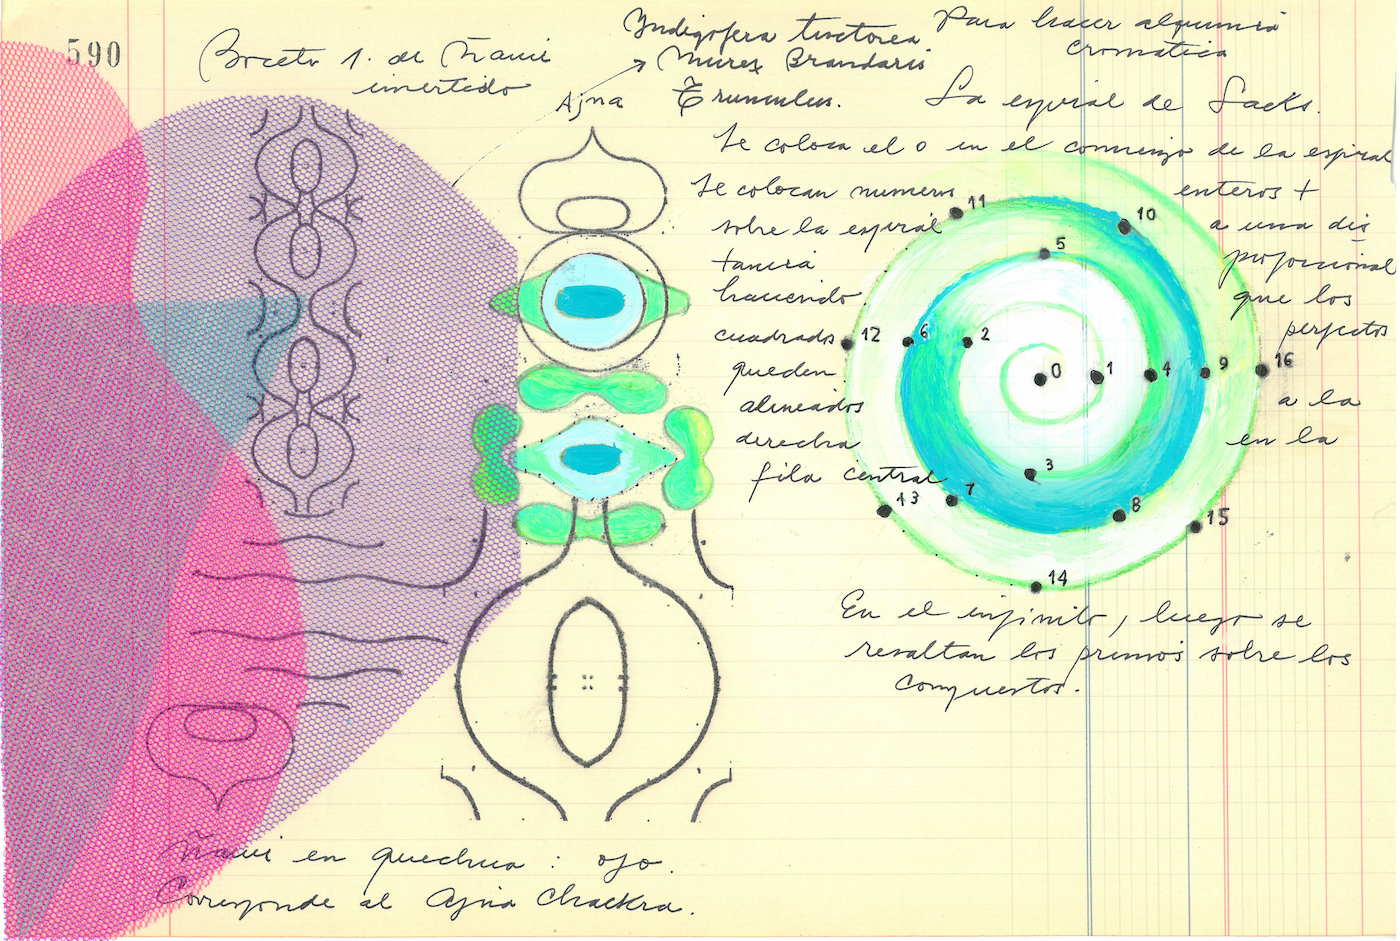 590
Boceto 1. de Ñawi
invertido
Indigofera tinctorea
Murex Brandaris
Trunculus.
Ajna
Para hacer alquimia
cromática
La espiral de Sacks.
Se coloca el 0 en el comienzo de la espiral
Se colocan numeros enteros +
sobre la espiral a una dis
tancia proporcional
haciendo que los
cuadrados perfectos
queden
alineados a la
derecha en la
fila central
0
1
2
3
4
5
6
7
8
9
10
11
12
13
14
15
16
En el infinito, luego se
resaltan los primos sobre los
compuestos.
Ñawi en quechua : ojo.
Corresponde al Ajna Chackra.